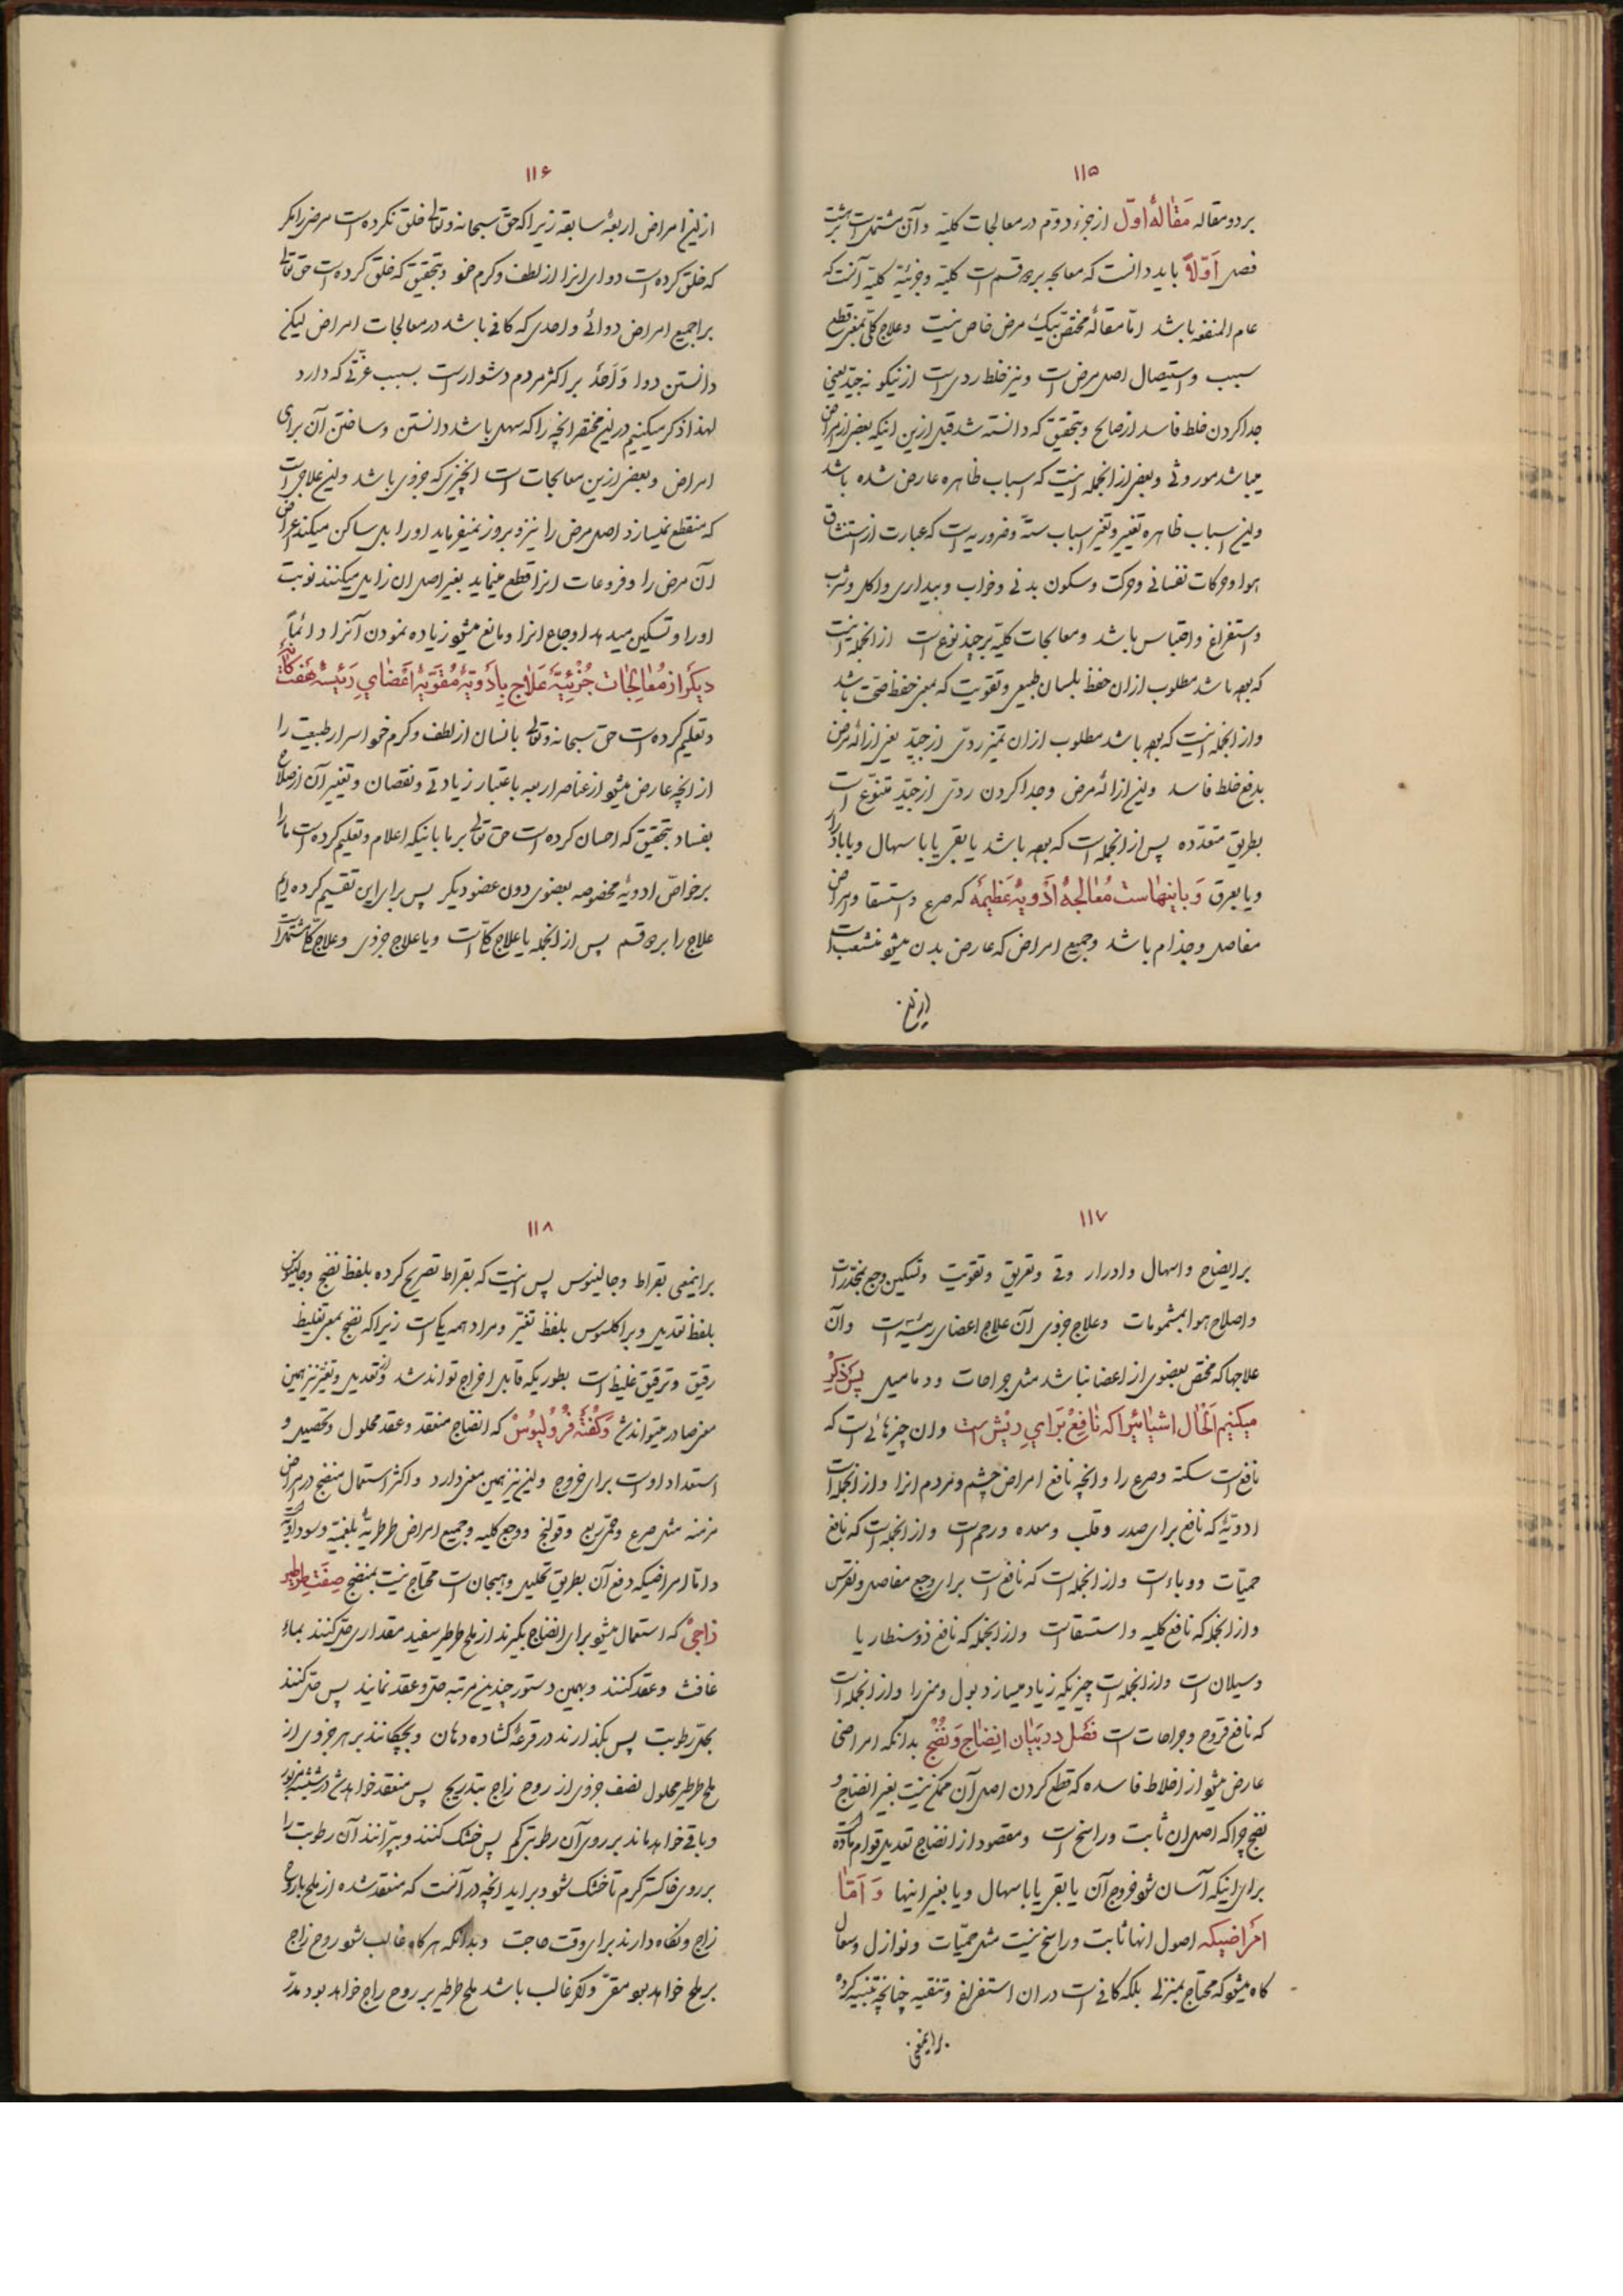 ۱۱۵
بر دو مقاله مَقالهٔ اوّل از جزء دوّم در معالجات کلیّه و آن مشتملست بر هشت
فصل اَوّلاً باید دانست که معالجه بر دو قسم است کلیّه و جزئیّه کلیّه آنست که
عام المنفعه باشد امّا مقالهٔ مختصّ بیک مرض خاص نیست و علاج کلّی بمعنی قطع
سبب و استیصال اصل مرض است و نیز خلط ردی است از نیکو نه جیّد یعنی
جدا کردن خلط فاسد از صالح و بتحقیق که دانسته شد قبل ازین اینکه بعضی از امراض
میباشد موروثی و بعضی از انجمله اینست که اسباب ظاهره عارض شده باشد
و این اسباب ظاهره تغییر و تغیّر اسباب ستّه و ضروریه است که عبارت از استنشاق
هوا و حرکات نفسانی و حرکت و سکون بدنی و خواب و بیداری و اکل و شرب
و استفراغ و احتباس باشد و معالجات کلیّه بر چند نوع است از انجمله اینست
که بوده باشد مطلوب ازان حفظ بلسان طبیعی و تقویت که بمعنی حفظ صحّت باشد
و از انجمله اینست که بوده باشد مطلوب ازان تمیز ردّی از جیّد یعنی ازالهٔ مرض
بدفع خلط فاسد و این ازالهٔ مرض و جدا کردن ردّی از جیّد متنوّع است
بطریق متعدّده پس از انجمله است که بوده باشد یا بقی یا باسهال و یا بادرار
و یا بعرق وَ باینهاست مُعالجهٔ اَدویهٔ عَظیمَه که صرع و استسقا و امراض
مفاصل و جذام باشد و جمیع امراض که عارض بدن میشود منشعب است
از این
۱۱۶
از این امراض اربعهٔ سابقه زیرا که حق سبحانه و تعالی خلق نکرده است مرضی را مگر
که خلق کرده است دوای انرا از لطف و کرم خود و بتحقیق که خلق کرده است حق تعالی
برا جمیع امراض دوائی واحدی که کافی باشد در معالجات امراض لیکن
دانستن دوا وَاحدْ بر اکثر مردم دشوار است بسبب عزّتی که دارد
لهذا ذکر میکنیم در این مختصر انچه را که سهل باشد دانستن و ساختن آن برای
امراض و بعضی ازین معالجات است انچیزی که جزوی باشد و این علاجی است
که منقطع نمیسازد اصل مرض را نیز و بروز نمیفرماید او را بل ساکن میکند اعراض
آن مرض را و فروعات انرا قطع مینماید بغیر اصل ان زایل میکنند نوبت
اورا و تسکین میدهد اوجاع انرا و مانع میشود زیاده نمودن آنرا دائماً
دیکَر از مُعالِجات جُزْئِیّه عَلاج بِاَدْوِیَهٔ مُقَوّیَهٔ اَعْضایِ رَئیسَهٔ هَفت کانَه
و تعلیم کرده است حق سبحانه و تعالی بانسان از لطف و کرم خود اسرار طبیعت را
از انچه عارض میشود از عناصر اربعه باعتبار زیادتی و نقصان و تغییر آن از صلاح
بفساد بتحقیق که احسان کرده است حق تعالی بر ما باینکه اعلام و تعلیم کرده است ما را
بر خواصّ ادویهٔ مخصوصه بعضوی دون عضو دیکر پس برای این تقسیم کرده ایم
علاج را بر دو قسم پس از انجمله یا علاج کلّی است و یا علاج جزوی و علاج کلّی مشتملست
۱۱۷
بر ایضاج و اسهال و ادرار و قی و تعریق و تقویت و تسکین وجع بمخدّرات
و اصلاح هوا بمشمومات و علاج جزوی آن علاج اعضای رئیسه است و آن
علاجها که مختصّ بعضوی از اعضا نباشد مثل جراحات و دمامیل پس ذِکر
میکنیم اَلحال اشیائیرا که نافِع بَرایِ ریش است و ان چیزهائی است که
نافع است سکته و صرع را و انچه نافع امراض چشم و مردم انرا و از انجمله است
ادویهٔ که نافع برای صدر و قلب و معده و رحم است و از انجمله است که نافع
حمیّات و وباء است و از انجمله است که نافع است برای وجع مفاصل و نقرس
و از انجمله که نافع کلیه و استسقا است و از انجمله که نافع ذوسنطاریا
و سیلان است و از انجمله است چیزیکه زیاد میسازد بول و منی را و از انجمله است
که نافع قروح و جراحات است فَصْل در بَیان ایضاج وَ نُضْج بدانکه امراضی
عارض میشود از اخلاط فاسده که قطع کردن اصل آن ممکن نیست بغیر انضاج و
نضج چرا که اصل ان ثابت و راسخ است و مقصود از انضاج تعدیل قوام مادّه است
برای اینکه آسان شود خروج آن یا بقی یا باسهال و یا بغیر اینها وَ اَمّا
اَمراضیکه اصول انها ثابت و راسخ نیست مثل حمیّات و نوازل و سعال
کاه میشود که محتاج بمنزلی بلکه کافی است دران استفراغ و تنقیه چنانچه تنبیه کرده
براینمعنی
۱۱۸
براینمعنی بقراط و جالینوس پس اینست که بقراط تصریح کرده بلفظ نضج و جالینوس
بلفظ تعدیل و براکلسوس بلفظ تغیّر و مراد همه یکی است زیرا که نضج بمعنی تغلیظ
رقیق و ترقیق غلیظ است بطوریکه قابل اخراج تواند شد و از تعدیل و تغیّر نیز همین
معنی صادر میتواند شد وَکُفْتَهٔ فُرْولیُوسْ که انضاج منعقد و عقد محلول و تحصیل و
استعداد او است برای خروج و این نیز همین معنی دارد و اکثر استعمال منضج در امراض
مزمنه مثل صرع و حمّی ربع و قولنج و وجع کلیه و جمیع امراض طرطریهٔ بلغمیّه و سوداویّه
و امّا امراضیکه دفع آن بطریق تحلیل و هیجان است محتاج نیست بمنضج صِفَتِ طرطیر
زاجی که استعمال میشود برای انضاج بکیرند از ملح طرطیر سفید مقداری حلّ کنند بماء
غافث و عقد کنند و بهمین دستور چندین مرتبه حلّ و عقد نمایند پس حلّ کنند
بحلّ رطوبت پس بکذارند در قرعهٔ کشاده دهان و بچکانند بر هر جزوی از
ملح طرطیر محلول نصف جزوی از روح زاج بتدریج پس منعقد خواهد شد در شیشه مزبور
و باقی خواهد ماند بر روی آن رطوبتی کم پس خشک کنند و بپرانند آن رطوبت را
بر روی خاکستر کرم تا خشک شود و براید انچه در آنست که منعقد شده از ملح با روح
زاج و نکاه دارند برای وقت حاجت و بدانکه هر کاه غالب شود روح زاج
بر ملح خواهد بود مقیّ و اکر غالب باشد ملح طرطیر بر روح زاج خواهد بود مدرّ